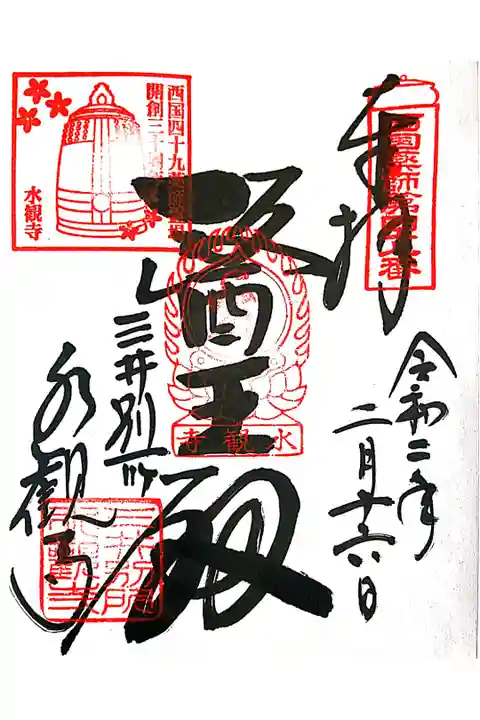 奉拝
西国薬師第四十八番
令和二年
二月十六日
醫王殿
水観寺
西国四十九薬師霊場
開創三十周年
水観寺
三井別所
水観寺